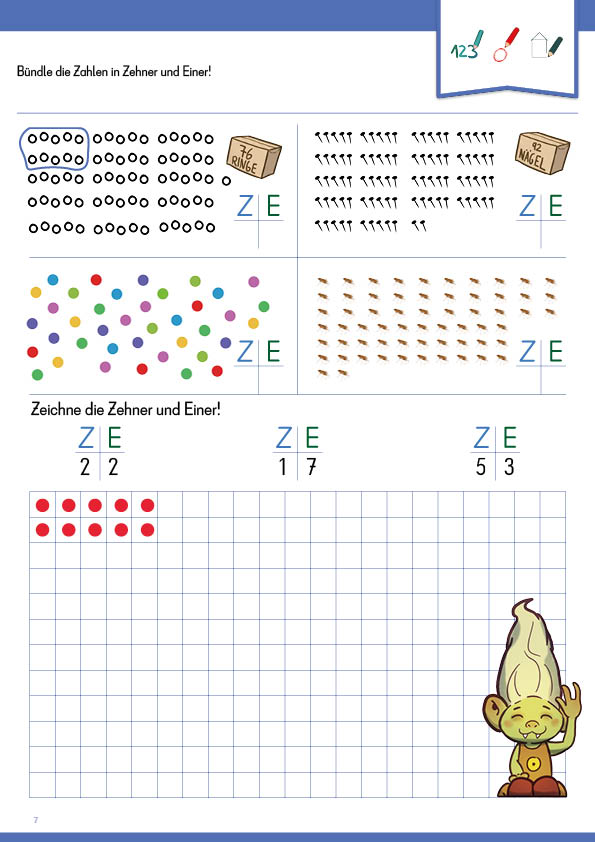 123
Bündle die Zahlen in Zehner und Einer!
76
RINGE
92
NÄGEL
Z E
Z E
Z E
Z E
Zeichne die Zehner und Einer!
Z E
2 2
Z E
1 7
Z E
5 3
7